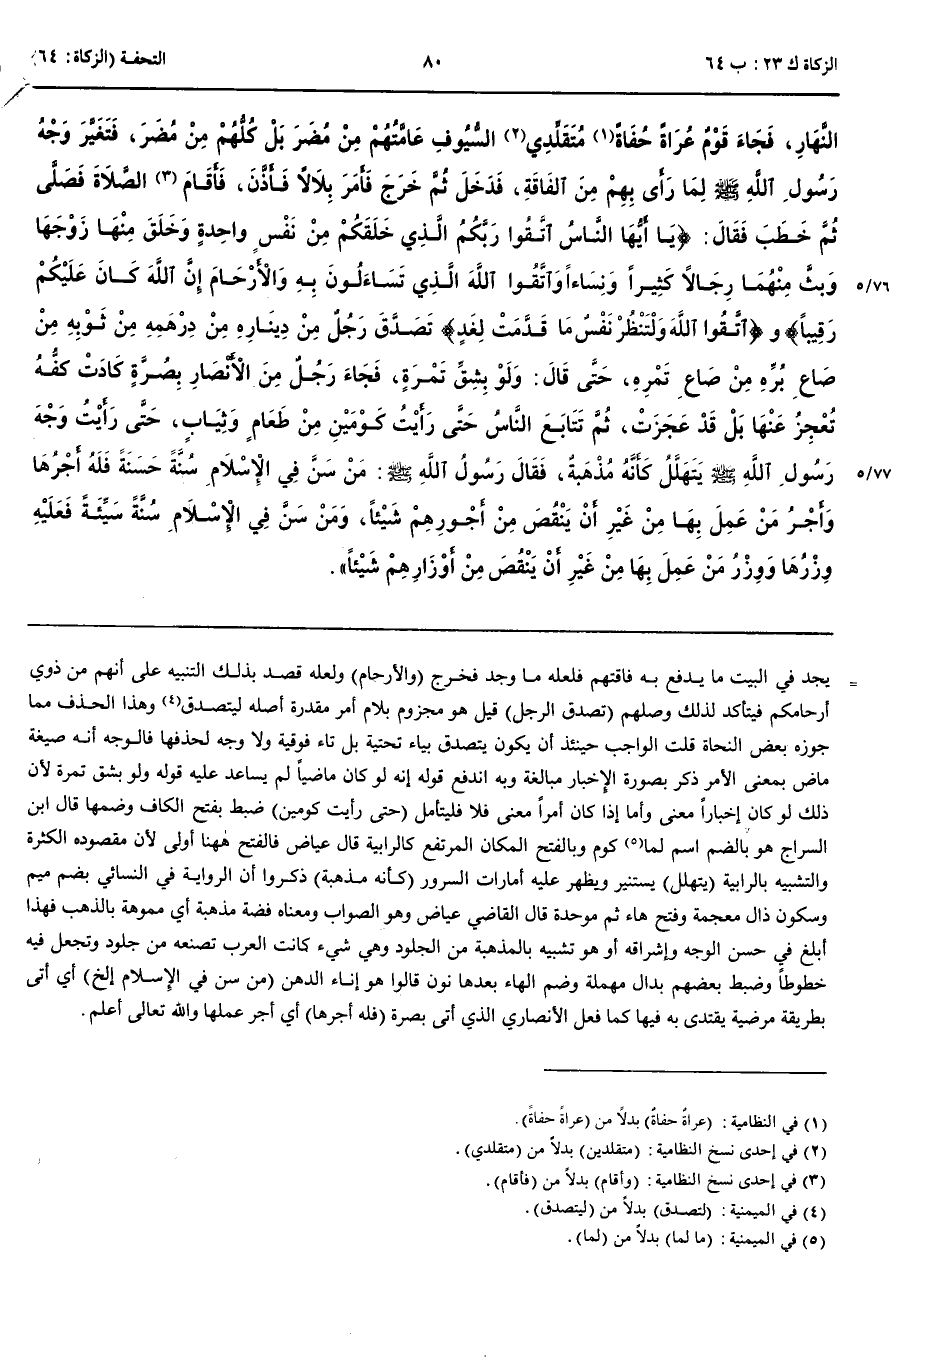 الزكاة ك ٢٣ : ب ٦٤
٨٠
التحفة (الزكاة: ٦٤)
النَّهَارِ، فَجَاءَ قَوْمٌ عُرَاةً حُفَاةً(١) مُتَقَلِّدِي(٢) السُّيُوفِ عَامَّتُهُمْ مِنْ مُضَرَ بَلْ كُلُّهُمْ مِنْ مُضَرَ، فَتَغَيَّرَ وَجْهُ
رَسُولِ اللَّهِ ﷺ لِمَا رَأَى بِهِمْ مِنَ الفَاقَةِ، فَدَخَلَ ثُمَّ خَرَجَ فَأَمَرَ بِلَالاً فَأَذَّنَ، فَأَقَامَ (٣) الصَّلَاةَ فَصَلَّى
ثُمَّ خَطَبَ فَقَالَ: ﴿يَا أَيُّهَا النَّاسُ اتَّقُوا رَبَّكُمُ الَّذِي خَلَقَكُمْ مِنْ نَفْسٍ واحِدةٍ وَخَلَقَ مِنْهَا زَوْجَهَا
٥/٧٦ وَبثَّ مِنْهُمَا رِجَالاً كَثِيراً وَنِساءاً وَاتَّقُوا اللَّهَ الَّذِي تَسَاءَلُونَ بِهِ وَالأَرْحَامَ إِنَّ اللَّهَ كَانَ عَلَيْكُمْ
رَقِيباً﴾ و ﴿اتَّقُوا اللَّهَ وَلْتَنْظُرْ نَفْسٌ مَا قَدَّمَتْ لِغَدٍ﴾ تَصَدَّقَ رَجُلٌ مِنْ دِينَارِهِ مِنْ دِرْهَمِهِ مِنْ ثَوْبِهِ مِنْ
صَاعِ بُرِّهِ مِنْ صَاعِ تَمْرِهِ، حَتَّى قَالَ: وَلَوْ بِشِقِّ تَمْرَةٍ، فَجَاءَ رَجُلٌ مِنَ الأَنْصَارِ بِصُرَّةٍ كَادَتْ كَفُّهُ
تُعْجِزُ عَنْهَا بَلْ قَدْ عَجَزَتْ، ثُمَّ تَتَابَعَ النَّاسُ حَتَّى رَأَيْتُ كَوْمَيْنِ مِنْ طَعَامٍ وَثِيَابٍ، حَتَّى رَأَيْتُ وَجْهَ
٥/٧٧ رَسُولِ اللَّهِ ﷺ يَتَهَلَّلُ كَأَنَّهُ مُذْهَبَةٌ، فَقَالَ رَسُولُ اللَّهِ ﷺ: مَنْ سَنَّ فِي الإِسْلَامِ سُنَّةً حَسَنَةً فَلَهُ أَجْرُهَا
وَأَجْرُ مَنْ عَمِلَ بِهَا مِنْ غَيْرِ أَنْ يَنْقُصَ مِنْ أُجُورِهِمْ شَيْئاً، وَمَنْ سَنَّ فِي الإِسْلَامِ سُنَّةً سَيِّئَةً فَعَلَيْهِ
وِزْرُهَا وَوِزْرُ مَنْ عَمِلَ بِهَا مِنْ غَيْرِ أَنْ يَنْقُصَ مِنْ أَوْزَارِهِمْ شَيْئاً».
= يجد في البيت ما يدفع به فاقتهم فلعله ما وجد فخرج (والأرحام) ولعله قصد بذلك التنبيه على أنهم من ذوي
أرحامكم فيتأكد لذلك وصلهم (تصدق الرجل) قيل هو مجزوم بلام أمر مقدرة أصله ليتصدق(٤) وهذا الحذف مما
جوزه بعض النحاة قلت الواجب حينئذ أن يكون يتصدق بياء تحتية بل تاء فوقية ولا وجه لحذفها فالوجه أنه صيغة
ماض بمعنى الأمر ذكر بصورة الإخبار مبالغة وبه اندفع قوله إنه لو كان ماضياً لم يساعد عليه قوله ولو بشق تمرة لأن
ذلك لو كان إخباراً معنى وأما إذا كان أمراً معنى فلا فليتأمل (حتى رأيت كومين) ضبط بفتح الكاف وضمها قال ابن
السراج هو بالضم اسم لما(٥) كوم وبالفتح المكان المرتفع كالرابية قال عياض فالفتح ههنا أولى لأن مقصوده الكثرة
والتشبيه بالرابية (يتهلل) يستنير ويظهر عليه أمارات السرور (كأنه مذهبة) ذكروا أن الرواية في النسائي بضم ميم
وسكون ذال معجمة وفتح هاء ثم موحدة قال القاضي عياض وهو الصواب ومعناه فضة مذهبة أي مموهة بالذهب فهذا
أبلغ في حسن الوجه وإشراقه أو هو تشبيه بالمذهبة من الجلود وهي شيء كانت العرب تصنعه من جلود وتجعل فيه
خطوطاً وضبط بعضهم بدال مهملة وضم الهاء بعدها نون قالوا هو إناء الدهن (من سن في الإسلام إلخ) أي أتى
بطريقة مرضية يقتدى به فيها كما فعل الأنصاري الذي أتى بصرة (فله أجرها) أي أجر عملها والله تعالى أعلم.
(١) في النظامية: (عراةٌ حفاةٌ) بدلاً من (عراةً حفاةً).
(٢) في إحدى نسخ النظامية: (متقلدين) بدلاً من (متقلدي).
(٣) في إحدى نسخ النظامية: (وأقام) بدلاً من (فأقام).
(٤) في الميمنية: (لتصدق) بدلاً من (ليتصدق).
(٥) في الميمنية: (ما لما) بدلاً من (لما).